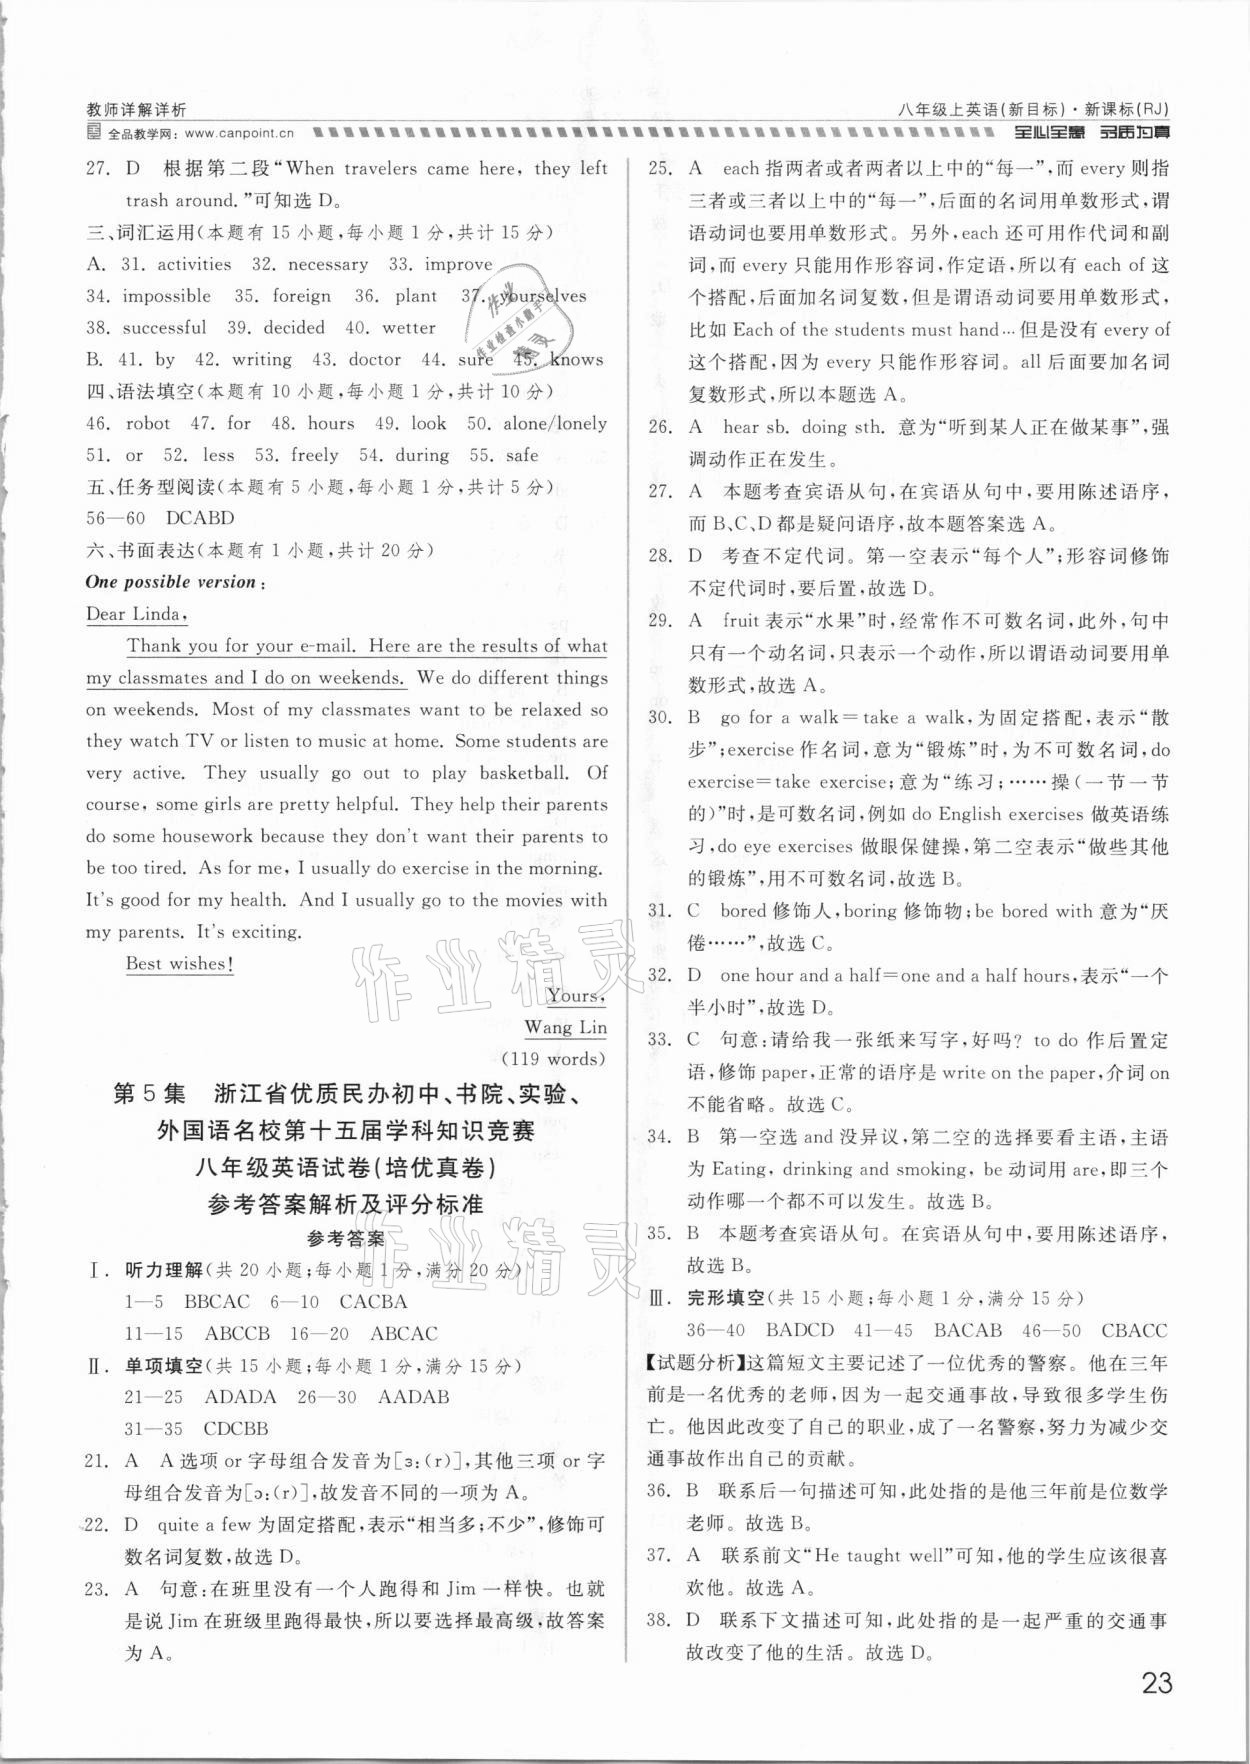 教师详解详析
八年级上英语(新目标)·新课标(RJ)
全品教学网：www.canpoint.cn
全心全意 另质为真
27. D 根据第二段“When travelers came here, they left
trash around.”可知选 D。
三、词汇运用(本题有 15 小题,每小题 1 分,共计 15 分)
A. 31. activities 32. necessary 33. improve
34. impossible 35. foreign 36. plant 37. yourselves
38. successful 39. decided 40. wetter
B. 41. by 42. writing 43. doctor 44. sure 45. knows
四、语法填空(本题有 10 小题,每小题 1 分,共计 10 分)
46. robot 47. for 48. hours 49. look 50. alone/lonely
51. or 52. less 53. freely 54. during 55. safe
五、任务型阅读(本题有 5 小题,每小题 1 分,共计 5 分)
56—60 DCABD
六、书面表达(本题有 1 小题,共计 20 分)
One possible version:
Dear Linda,
Thank you for your e-mail. Here are the results of what
my classmates and I do on weekends. We do different things
on weekends. Most of my classmates want to be relaxed so
they watch TV or listen to music at home. Some students are
very active. They usually go out to play basketball. Of
course, some girls are pretty helpful. They help their parents
do some housework because they don't want their parents to
be too tired. As for me, I usually do exercise in the morning.
It's good for my health. And I usually go to the movies with
my parents. It's exciting.
Best wishes!
Yours,
Wang Lin
(119 words)
第 5 集 浙江省优质民办初中、书院、实验、
外国语名校第十五届学科知识竞赛
八年级英语试卷(培优真卷)
参考答案解析及评分标准
参考答案
Ⅰ. 听力理解(共 20 小题;每小题 1 分,满分 20 分)
1—5 BBCAC 6—10 CACBA
11—15 ABCCB 16—20 ABCAC
Ⅱ. 单项填空(共 15 小题;每小题 1 分,满分 15 分)
21—25 ADADA 26—30 AADAB
31—35 CDCBB
21. A A 选项 or 字母组合发音为[ɜ:(r)],其他三项 or 字
母组合发音为[ɔ:(r)],故发音不同的一项为 A。
22. D quite a few 为固定搭配,表示“相当多;不少”,修饰可
数名词复数,故选 D。
23. A 句意:在班里没有一个人跑得和 Jim 一样快。也就
是说 Jim 在班级里跑得最快,所以要选择最高级,故答案
为 A。
25. A each 指两者或者两者以上中的“每一”,而 every 则指
三者或三者以上中的“每一”,后面的名词用单数形式,谓
语动词也要用单数形式。另外,each 还可用作代词和副
词,而 every 只能用作形容词,作定语,所以有 each of 这
个搭配,后面加名词复数,但是谓语动词要用单数形式,
比如 Each of the students must hand…但是没有 every of
这个搭配,因为 every 只能作形容词。all 后面要加名词
复数形式,所以本题选 A。
26. A hear sb. doing sth. 意为“听到某人正在做某事”,强
调动作正在发生。
27. A 本题考查宾语从句,在宾语从句中,要用陈述语序,
而 B、C、D 都是疑问语序,故本题答案选 A。
28. D 考查不定代词。第一空表示“每个人”;形容词修饰
不定代词时,要后置,故选 D。
29. A fruit 表示“水果”时,经常作不可数名词,此外,句中
只有一个动名词,只表示一个动作,所以谓语动词要用单
数形式,故选 A。
30. B go for a walk=take a walk,为固定搭配,表示“散
步”;exercise 作名词,意为“锻炼”时,为不可数名词,do
exercise=take exercise;意为“练习;……操(一节一节
的)”时,是可数名词,例如 do English exercises 做英语练
习,do eye exercises 做眼保健操,第二空表示“做些其他
的锻炼”,用不可数名词,故选 B。
31. C bored 修饰人,boring 修饰物;be bored with 意为“厌
倦……”,故选 C。
32. D one hour and a half=one and a half hours,表示“一个
半小时”,故选 D。
33. C 句意:请给我一张纸来写字,好吗? to do 作后置定
语,修饰 paper,正常的语序是 write on the paper,介词 on
不能省略。故选 C。
34. B 第一空选 and 没异议,第二空的选择要看主语,主语
为 Eating, drinking and smoking, be 动词用 are,即三个
动作哪一个都不可以发生。故选 B。
35. B 本题考查宾语从句。在宾语从句中,要用陈述语序,
故选 B。
Ⅲ. 完形填空(共 15 小题;每小题 1 分,满分 15 分)
36—40 BADCD 41—45 BACAB 46—50 CBACC
【试题分析】这篇短文主要记述了一位优秀的警察。他在三年
前是一名优秀的老师,因为一起交通事故,导致很多学生伤
亡。他因此改变了自己的职业,成了一名警察,努力为减少交
通事故作出自己的贡献。
36. B 联系后一句描述可知,此处指的是他三年前是位数学
老师。故选 B。
37. A 联系前文“He taught well”可知,他的学生应该很喜
欢他。故选 A。
38. D 联系下文描述可知,此处指的是一起严重的交通事
故改变了他的生活。故选 D。
23
作业精灵
作业精灵
作业
作业检查小助手
精灵